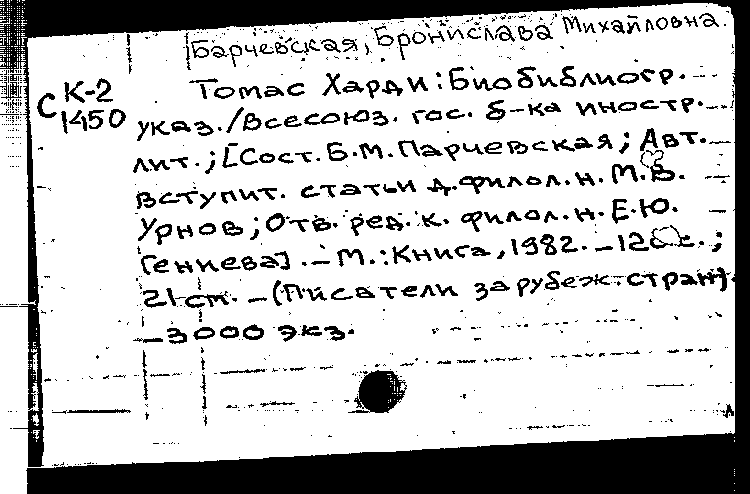 Барчевская, Бронислава Михайловна.
С К-2
1450
Томас Харди: Биобиблиогр.
указ./Всесоюз. гос. б-ка иностр.
лит.; [Сост. Б.М. Парчевская; Авт.
вступит. статьи д.филол.н. М.В.
Урнов; Отв. ред. к. филол.н. Е.Ю.
Гениева]. – М.: Книга, 1982. –
21 см. – (Писатели зарубеж. стран).
– 3000 экз.